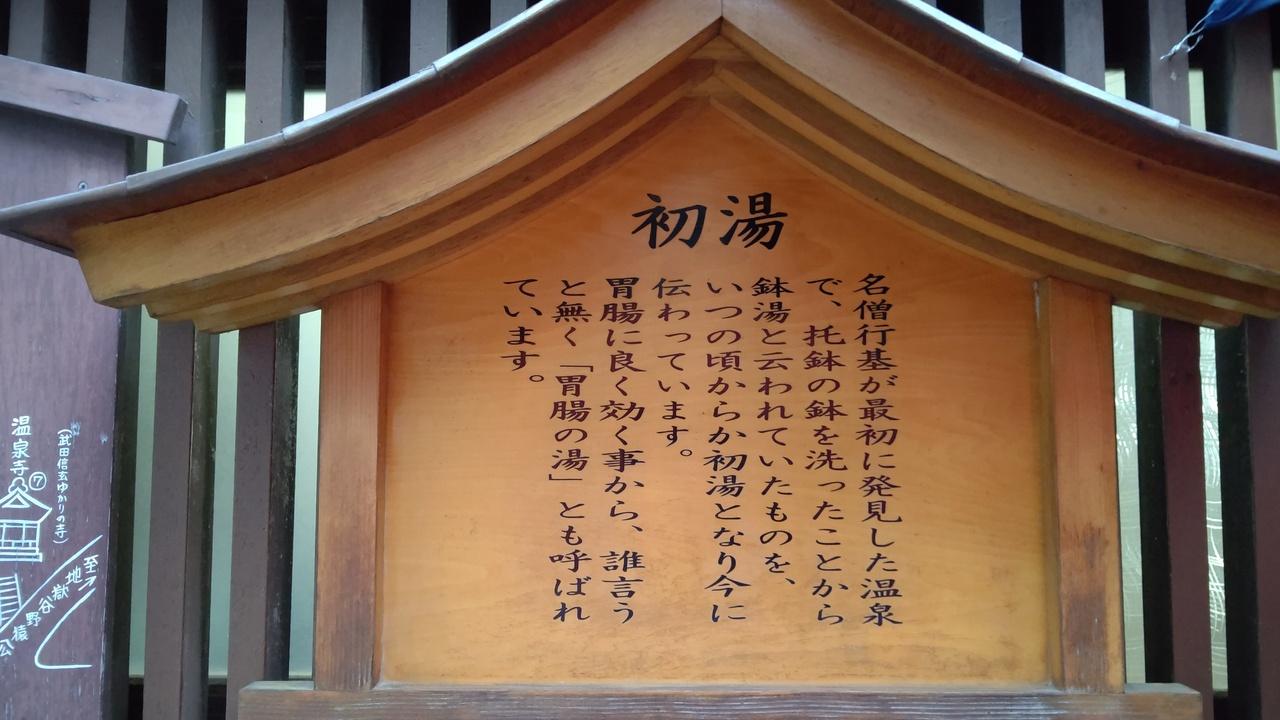 初湯
名僧行基が最初に発見した温泉
で、托鉢の鉢を洗ったことから
鉢湯と云われていたものを、
いつの頃からか初湯となり今に
伝わっています。
胃腸に良く効く事から、誰言う
と無く「胃腸の湯」とも呼ばれ
ています。
(武田信玄ゆかりの寺)
温泉寺⑦
至地獄谷野猿公